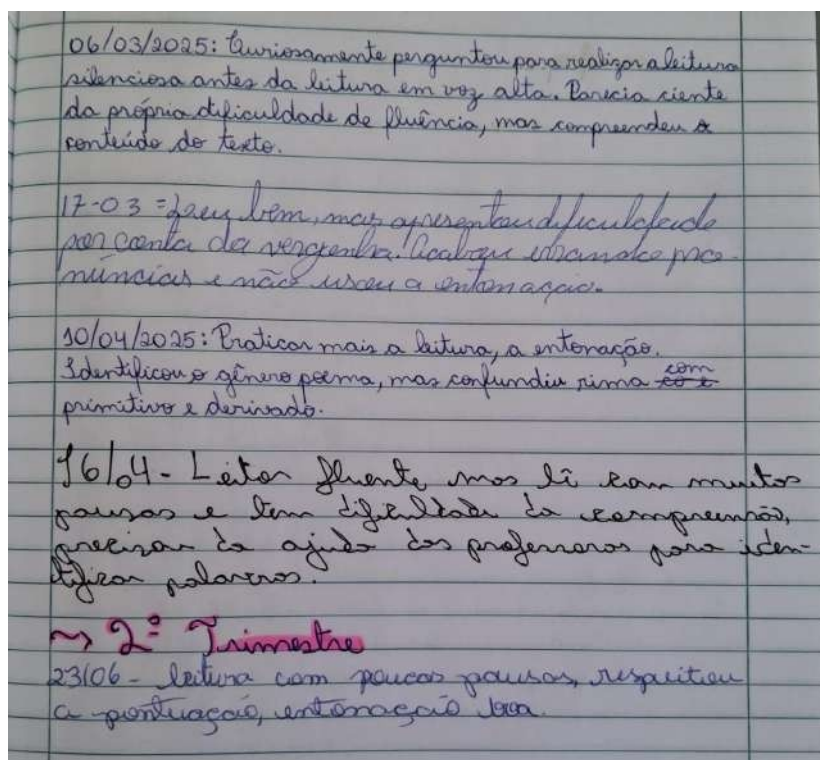 06/03/2025: Curiosamente perguntou para realizar a leitura
silenciosa antes da leitura em voz alta. Parecia ciente
da própria dificuldade de fluência, mas compreendeu o
conteúdo do texto.
17-03 = Leu bem, mas apresentou dificuldade
por conta da vergonha. Acabou errando pro-
núncias e não usou a entonação.
10/04/2025: Praticar mais a leitura, a entonação.
Identificou o gênero poema, mas confundiu rima com
primitivo e derivado.
16/04 - Leitor fluente mas lê com muitas
pausas e tem dificuldade da compreensão,
precisou da ajuda dos professores para iden-
tificar palavras.
~> 2º Trimestre
23/06 - leitura com poucas pausas, respeitou
a pontuação, entonação boa.